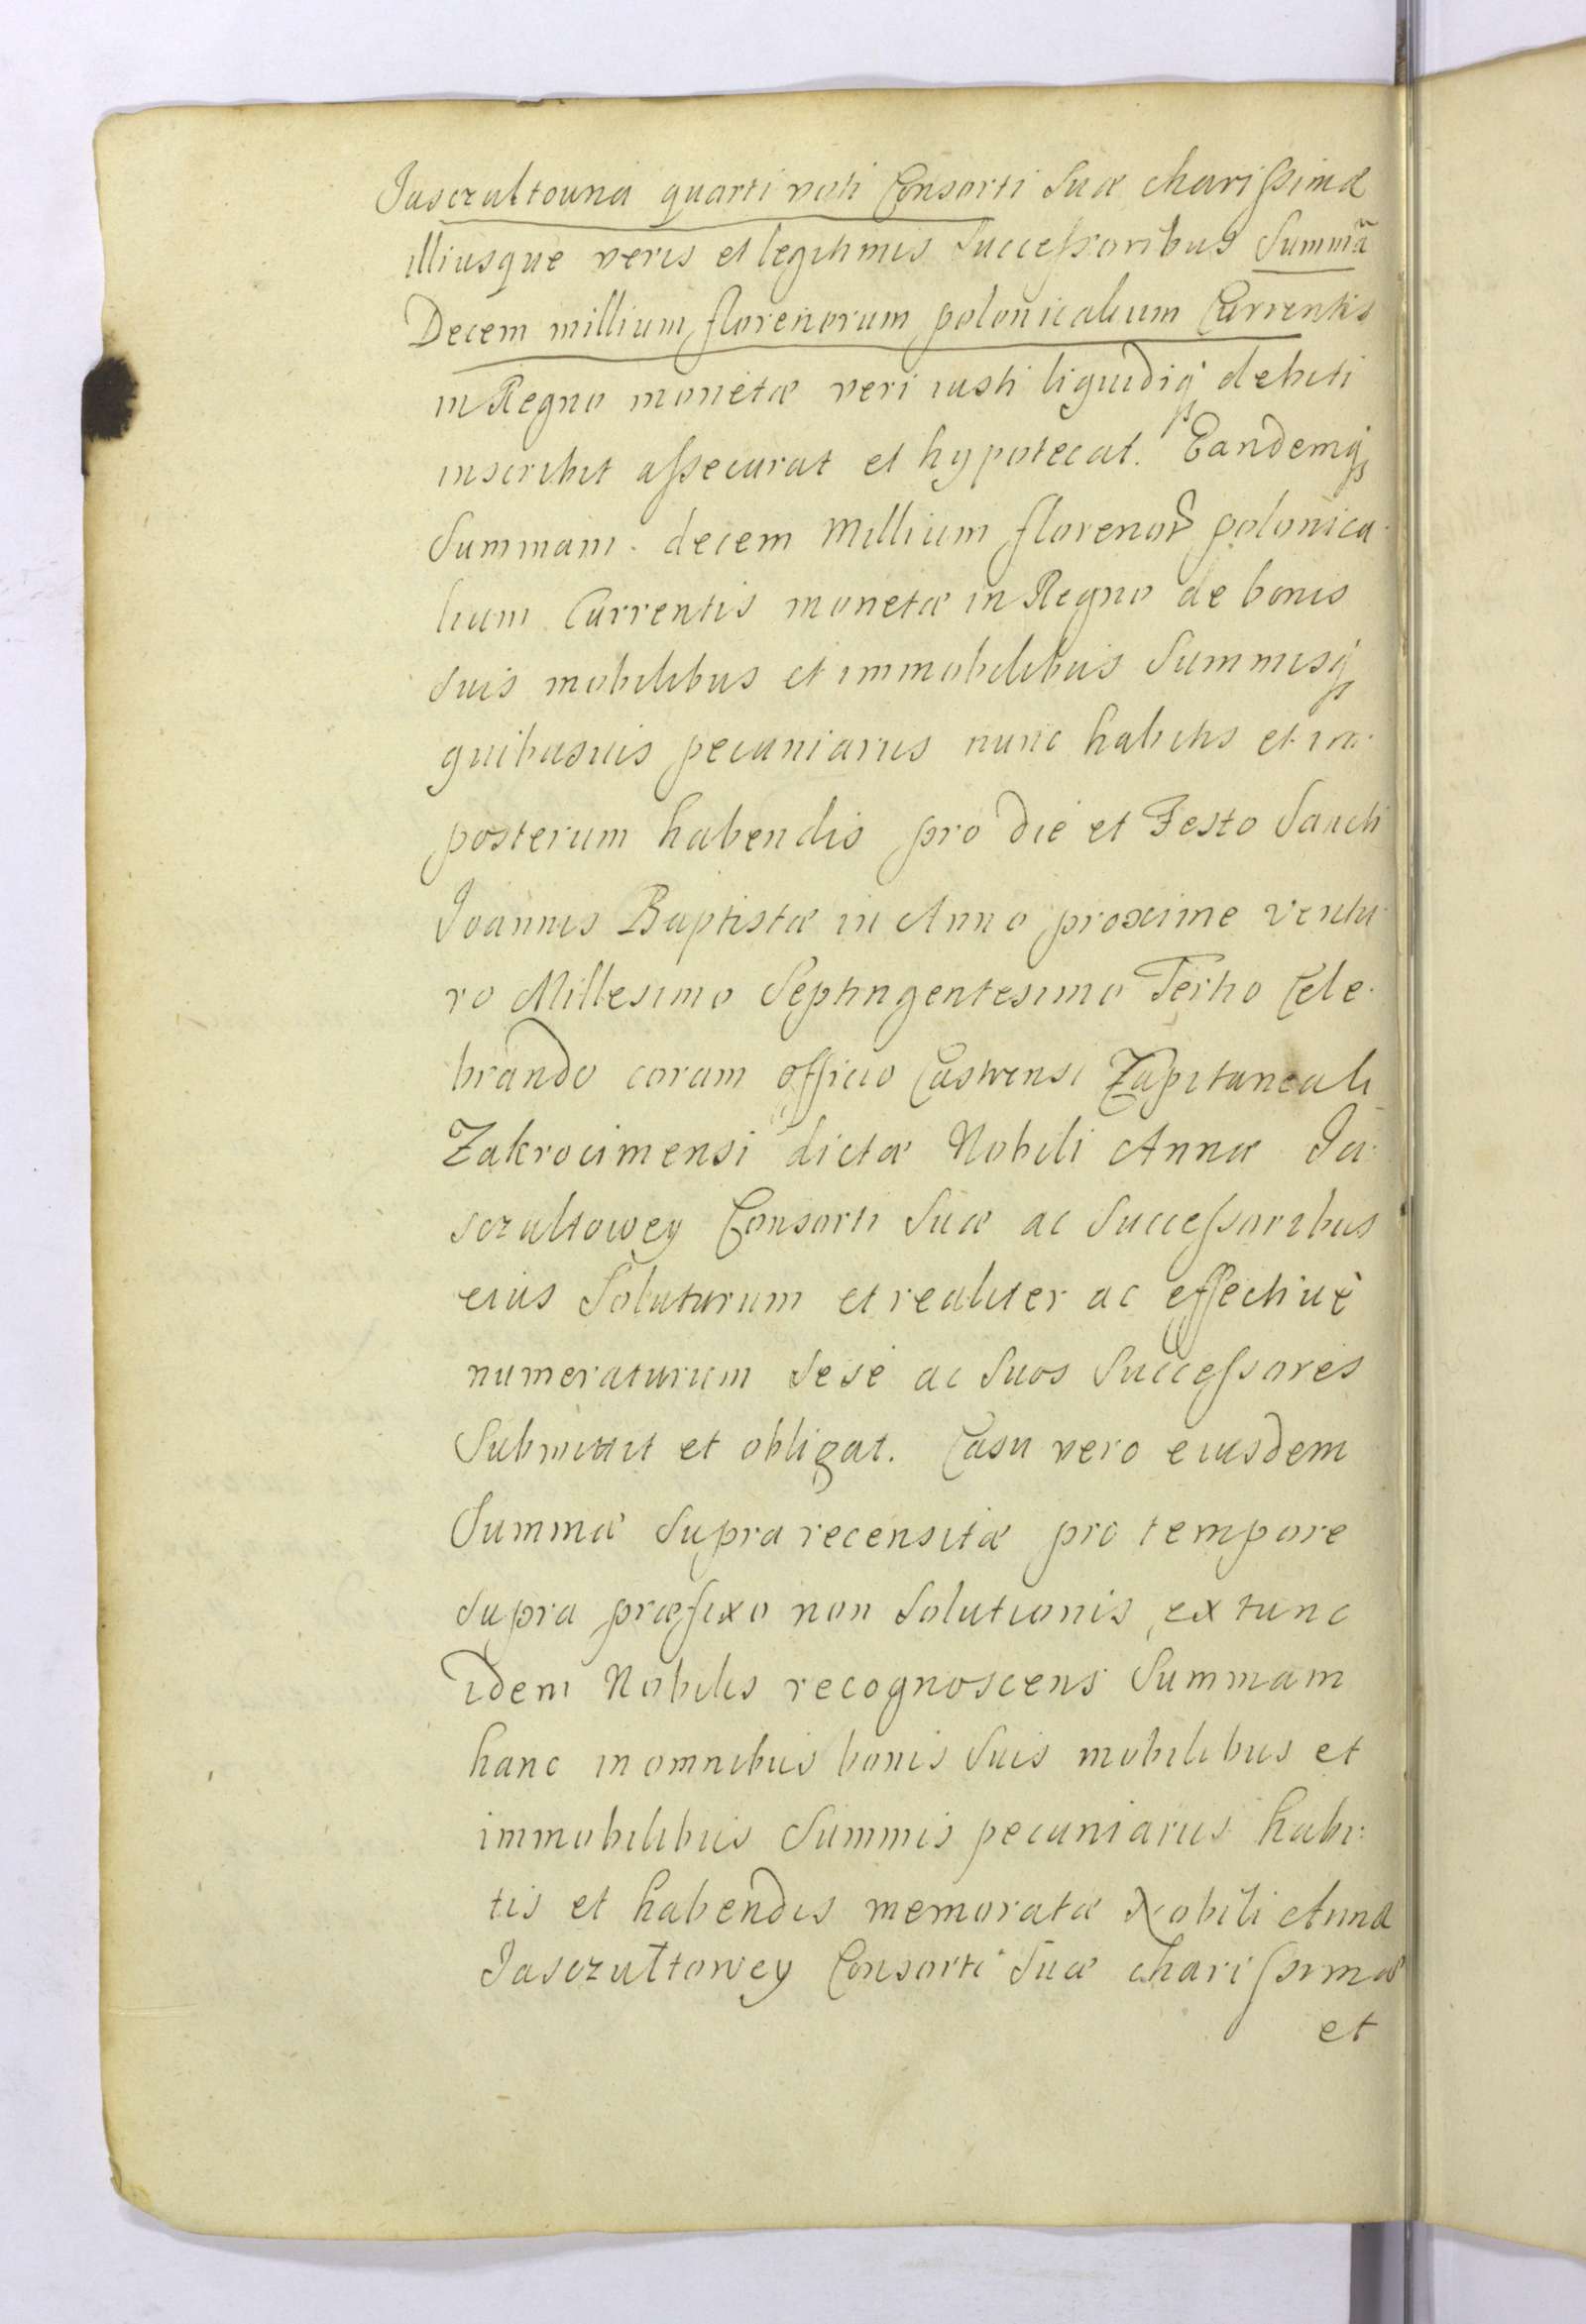 Jasczultowna quarti voti Consorti suæ charissimæ
illiusque veris et legitimis successoribus summã
Decem millium florenorum polonicalium Currentis
in Regno monetæ veri iusti liquidiq; debiti
inscribit assecurat et hypotecat. Eandemq;
summam decem Millium florenor. polonica-
lium Currentis monetæ in Regno de bonis
suis mobilibus et immobilibus summisq;
quibusuis pecuniariis nunc habitis et in
posterum habendis pro die et Festo Sancti
Joannis Baptistæ in Anno proxime ventu-
ro Millesimo Septingentesimo Tertio Cele-
brando coram officio Castrensi Capitaneali
Zakrocimensi dictæ Nobili Annæ Ja-
sczultowey Consorti suæ ac successoribus
eius soluturum et realiter ac effectiuè
numeraturum sese ac suos successores
submittit et obligat. Casu vero eiusdem
Summæ supra recensitæ pro tempore
supra præfixo non solutionis extunc
idem Nobilis recognoscens summam
hanc in omnibus bonis suis mobilibus et
immobilibus summis pecuniariis habi-
tis et habendis memoratæ Nobili Annæ
Jasczultowey Consorti suæ charissimæ
et